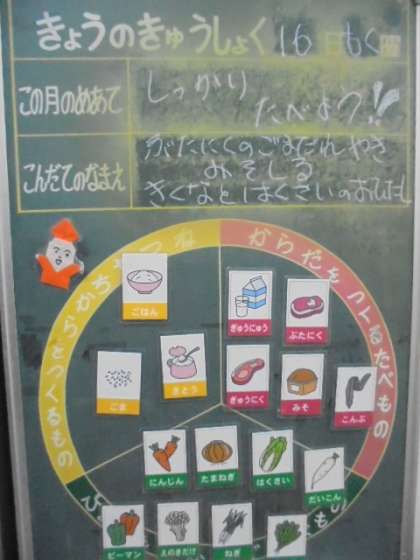 きょうのきゅうしょく 16日もく曜
この月のめあて
しっかり
たべよう!!
こんだてのなまえ
ぶたにくのごまだれやき
みそしる
きくなとはくさいのおひたし
ねつやちからをつくるもの
からだをつくるたべもの
ごはん
ぎゅうにゅう
ぶたにく
ごま
さとう
ぎゅうにく
みそ
こんぶ
にんじん
たまねぎ
はくさい
だいこん
ピーマン
えのきだけ
ねぎ